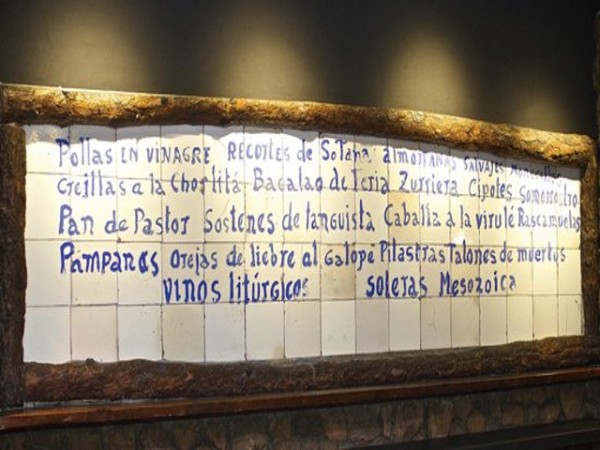 Pollas EN VINAGRE RECORTES de SoTana almorranas SALVAJES
Criillas a la Chorlita Bacalao de Feria Zurriera Cipotes Somorrostro
Pan de Pastor Sostenes de languista Caballa a la virulé Rascamuelas
PAMPANOS orejas de liebre al GALOPE Pilastras Talones de muertos
VINOS litúrgicos soleras Mesozoica